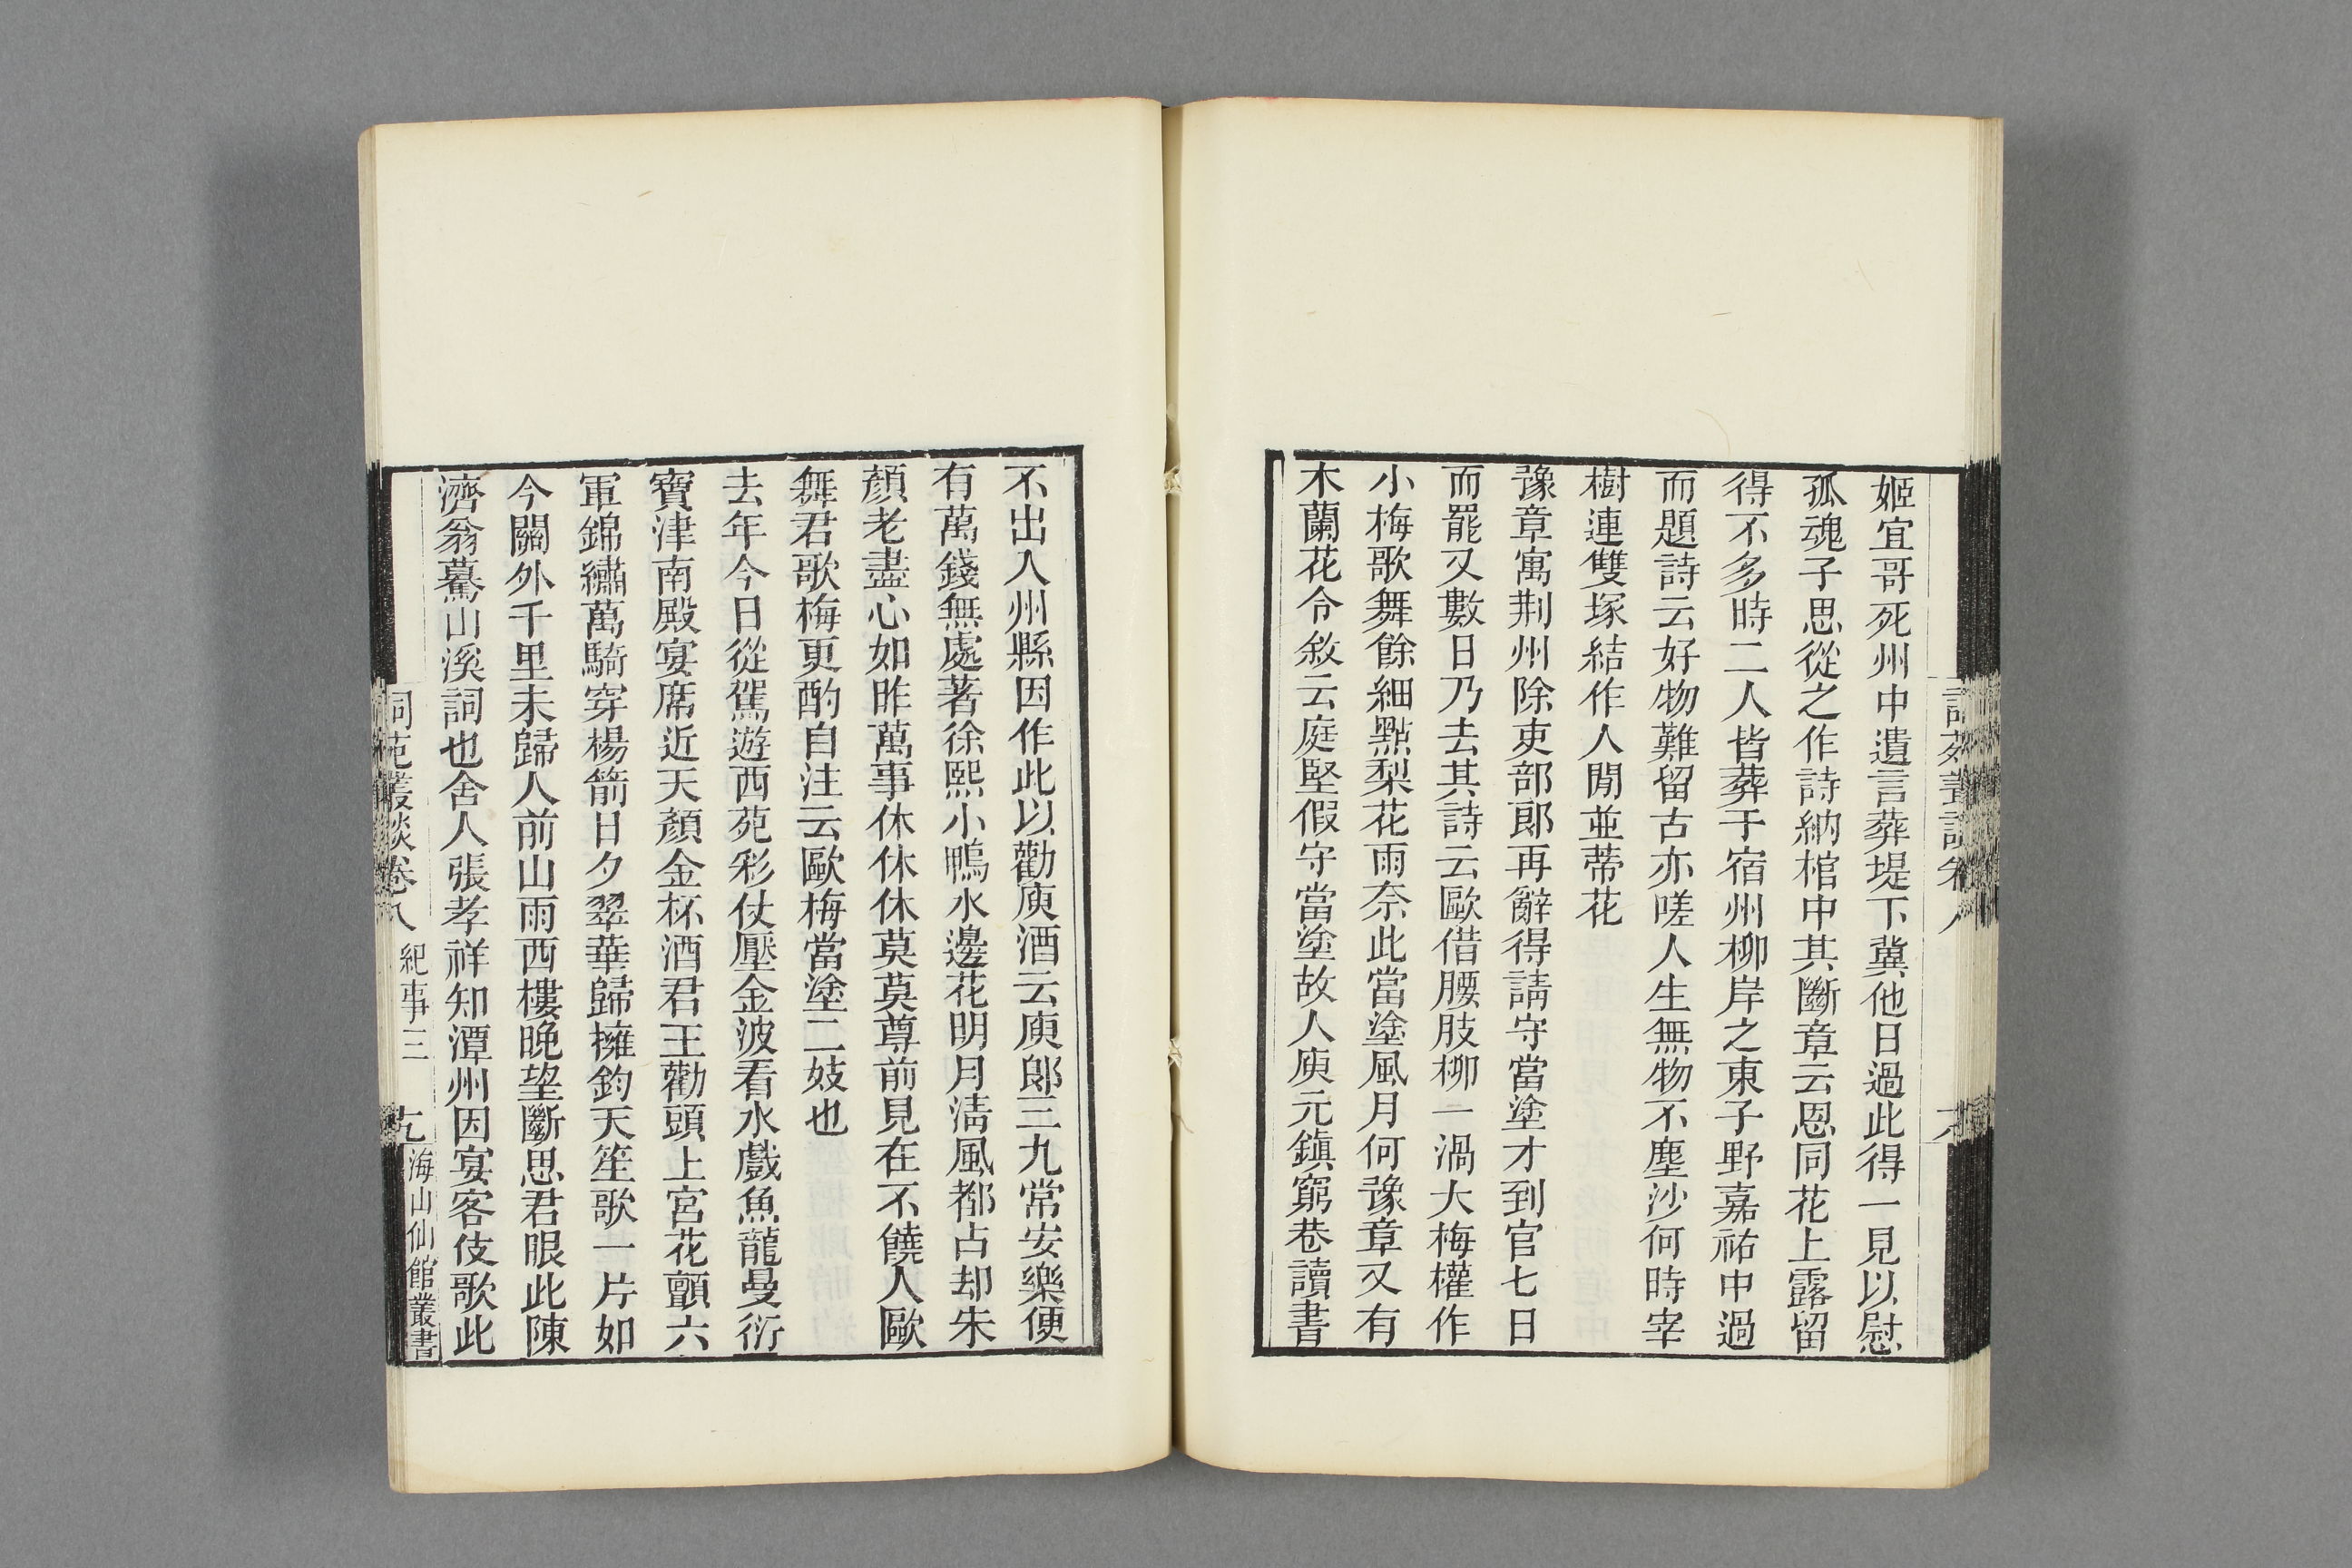 姬宜哥死州中遺言葬堤下冀他日過此得一見以慰
孤魂子思從之作詩納棺中其斷章云恩同花上露留
得不多時二人皆葬于宿州柳岸之東子野嘉祐中過
而題詩云好物難留古亦嗟人生無物不塵沙何時宰
樹連雙塚結作人閒並蒂花
豫章寓荆州除吏部郎再辭得請守當塗才到官七日
而罷又數日乃去其詩云歐借腰肢柳一渦大梅權作
小梅歌舞餘細點梨花雨奈此當塗風月何豫章又有
木蘭花令敘云庭堅假守當塗故人庾元鎮窮巷讀書
不出入州縣因作此以勸庾酒云庾郎三九常安樂便
有萬錢無處著徐熙小鴨水邊花明月清風都占却朱
顏老盡心如昨萬事休休休莫莫尊前見在不饒人歐
舞君歌梅更酌自注云歐梅當塗二妓也
去年今日從駕遊西苑彩仗壓金波看水戲魚龍曼衍
寶津南殿宴席近天顏金杯酒君王勸頭上宮花顫六
軍錦繡萬騎穿楊箭日夕翠華歸擁鈞天笙歌一片如
今關外千里未歸人前山雨西樓晚望斷思君眼此陳
濟翁驀山溪詞也舍人張孝祥知潭州因宴客伎歌此
詞苑叢談卷八 紀事三 十九 海山仙館叢書